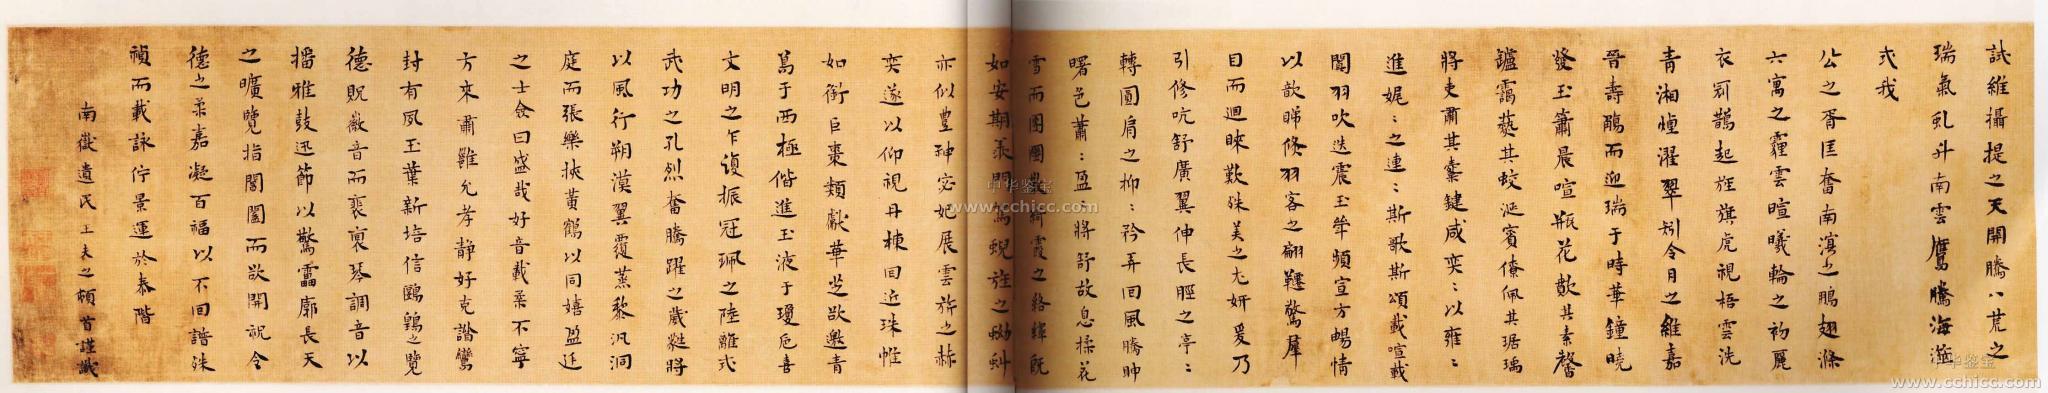 試維攝提之天開騰八荒之
瑞氣乳升南雲鷹騰海澨
式我
公之胥匡奮南溟之鵬翅滌
六寓之霾雲暄曦輪之初麗
衣冠鵲起旌旗虎視梧雲洗
青湘煙濯翠矧令月之維嘉
晉壽觴而迎瑞于時華鐘曉
發玉簫晨喧瓶花歕其素馨
鑪靄蓺其蛟涎賓僚佩其琚瑀
將吏肅其櫜鍵咸奕:以雍:
進娓:之連:斯歌斯頌載喧載
闐羽吹迭震玉笙頻宣方暢情
以歆睇倏羽客之翩韆驚犀
目而迴睞歎殊美之尤妍爰乃
引修吭舒廣翼伸長脛之亭:
轉圓肩之抑:矜弄回風騰眒
曙色蕭:盈:將舒故息揉花
雪而團團 霞之 既
如安期羨門 蜺旌之
亦似豐神宓妃展雲旂之赫
奕遂以仰視丹棟回近珠帷
如銜巨棗類獻華芝欲邀青
鳥于西極偕進玉液于瓊卮喜
文明之乍復振冠珮之陸離式
武功之孔烈奮騰躍之葳蕤將
以風行朔漠翼覆蒸黎汎洞
庭而張樂挾黃鶴以同嬉盈廷
之士僉曰盛哉好音載柔不寧
方來肅雝允孝靜好克諧鸞
封有夙玉葉新培信鷗鷁之覽
德貺徽音而裵裒琴調音以
播雅鼓迅節以驚靁廓長天
之曠覽指閶闔而欲開祝令
德之柔嘉凝百福以不回譜殊
禎而載詠佇景運於泰階
南嶽遺民王夫之頓首謹識
中华鉴宝
www.cchicc.com
中华鉴宝
www.cchicc.com